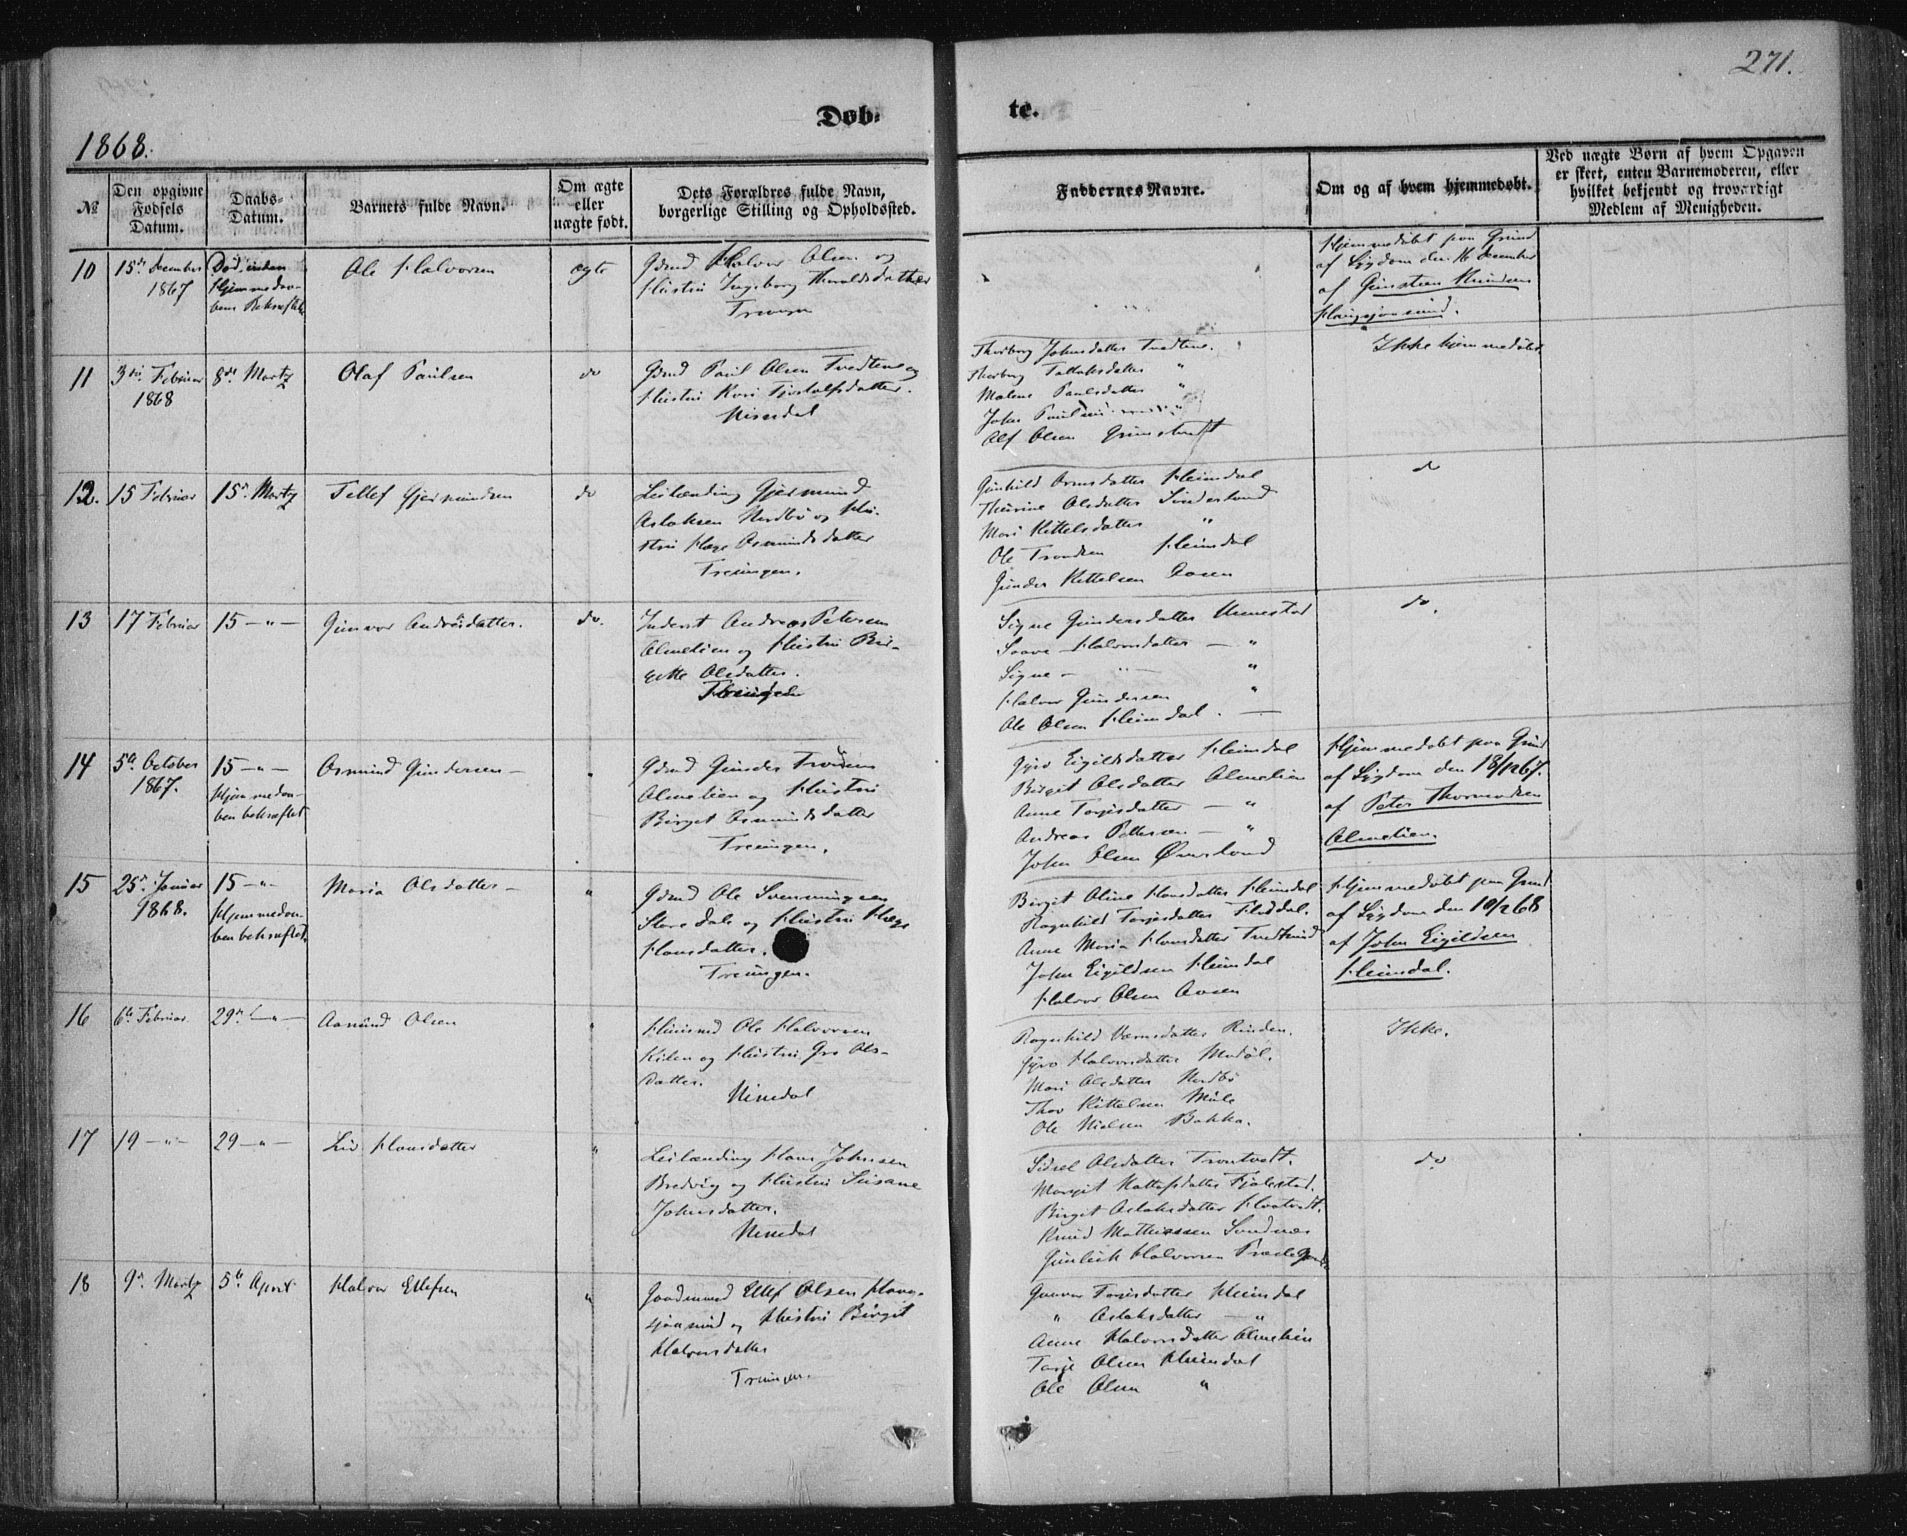 271.
Døb-
te.
1868.
№
Den opgivne
Fødsels
Datum.
Daabs-
Datum.
Barnets fulde Navn.
Om ægte
eller
uægte født.
Dets Forældres fulde Navn,
borgerlige Stilling og Opholdssted.
Faddernes Navne.
Om og af hvem hjemmedøbt.
Ved uægte Børn af hvem Opgaven
er skeet, enten Barnemoderen, eller
hvilket bekjendt og troværdigt
Medlem af Menigheden.
10
15de December
1867
Død, inden
Hjemmedaa-
bens Bekræftelse
Ole Halvorsen
ægte
Gdmd Halvor Olsen og
Hustru Ingeborg Tharaldsdatter
Treungen
Hjemmedøbt paa Grund
af Sygdom den 16 December
af Gunsteen Knudsen
Haugsjaasund.
11
3die Februar
1868
8de Martz
Olaf Paulsen
do
Gdmd Paul Olsen Tvedtene og
Hustru Kari Tjostolfsdatter.
Nissedal
Thorborg Johnsdatter Tvedtene.
Thorborg Tallaksdatter "
Malene Paulsdatter "
John Paulsen "
Alf Olsen Grimstvedt
Ikke hjemmedøbt
12.
15 Februar
15de Martz
Tellef Gjermundsen
do
Leilænding Gjermund
Aslaksen Nordbø og Hu-
stru Hæge Osmundsdatter
Treungen.
Gunhild Ormsdatter Heimdal
Thurine Olsdatter Sunderland
Mari Kittelsdatter "
Ole Trondsen Heimdal
Gunder Kittelsen Aasen
do
13
17 Februar
15 — " —
Gunvor Andreasdatter.
do.
Inderst Andreas Petersen
Almelien og Hustru Bir-
gitte Olsdatter.
Treungen
Signe Gundersdatter Unnestad
Saave Halvorsdatter — "
Signe — " — "
Halvor Gundersen "
Ole Olsen Heimdal. —
do.
14
5te October
1867.
15 — " —
Hjemmedaa-
ben bekræftet
Osmund Gundersen —
"
Gdmd Gunder
Almelien og Hustru
Birget Osmundsdatter
Treungen.
Gyro Eigildsdatter Heimdal
Birget Olsdatter Almelien
Anne Torjusdatter — "
Andreas Pettersen — "
John Olsen Ørnslund
Hjemmedøbt paa Grund
af Sygdom den 18/12 67.
af Peter Thormodsen
Almelien.
15
25de Januar
1868.
15 — " —
Hjemmedaa-
ben bekræftet.
Maria Olsdatter —
"
Gdmd Ole Svenningsen
Store Dale og Hustru Hæge
Hansdatter.
Treungen.
Birgit Oline Hansdatter Heimdal
Ragnhild Torjusdatter Fliddal.
Anne Maria Hansdatter Tvedtsund
John Eigildsen Heimdal
Halvor Olsen Aasen
Hjemmedøbt paa Grund
af Sygdom den 10/2 68
af John Eigildsen
Heimdal.
16
6te Februar
29de — " —
Aanund Olsen
"
Huusmd Ole Halvorsen
Kilen og Hustru Gro Ols-
datter.
Nissedal
Ragnhild Værmsdatter Rinden.
Gyro Halvorsdatter Midtøl.
Mari Olsdatter Nordbø
Thor Kittelsen Mule
Ole Nielsen Bakka.
Ikke.
17
19 — " —
29 — " —
Liv Hansdatter
"
Leilænding Hans Johnsen
Bredvig og Hustru Susane
Johnsdatter.
Nissedal
Sidsel Olsdatter Trontvedt.
Margit Kattafsdatter Fjalestad.
Birget Aslaksdatter Haatvedt.
Knud Mathiassen Sandnæs
Gunleik Halvorsen Præstegaard
do
18
9de Martz
5te April
Halvor Ellefsen
"
Gaardmand Ellef Olsen Haug-
sjaasund og Hustru Birgit
Halvorsdatter
Treungen.
Gunvor Torjusdatter Heimdal
" Aslaksdatter — "
Anne Halvorsdatter Almelien
Tarje Olsen Heimdal
Ole Olsen "